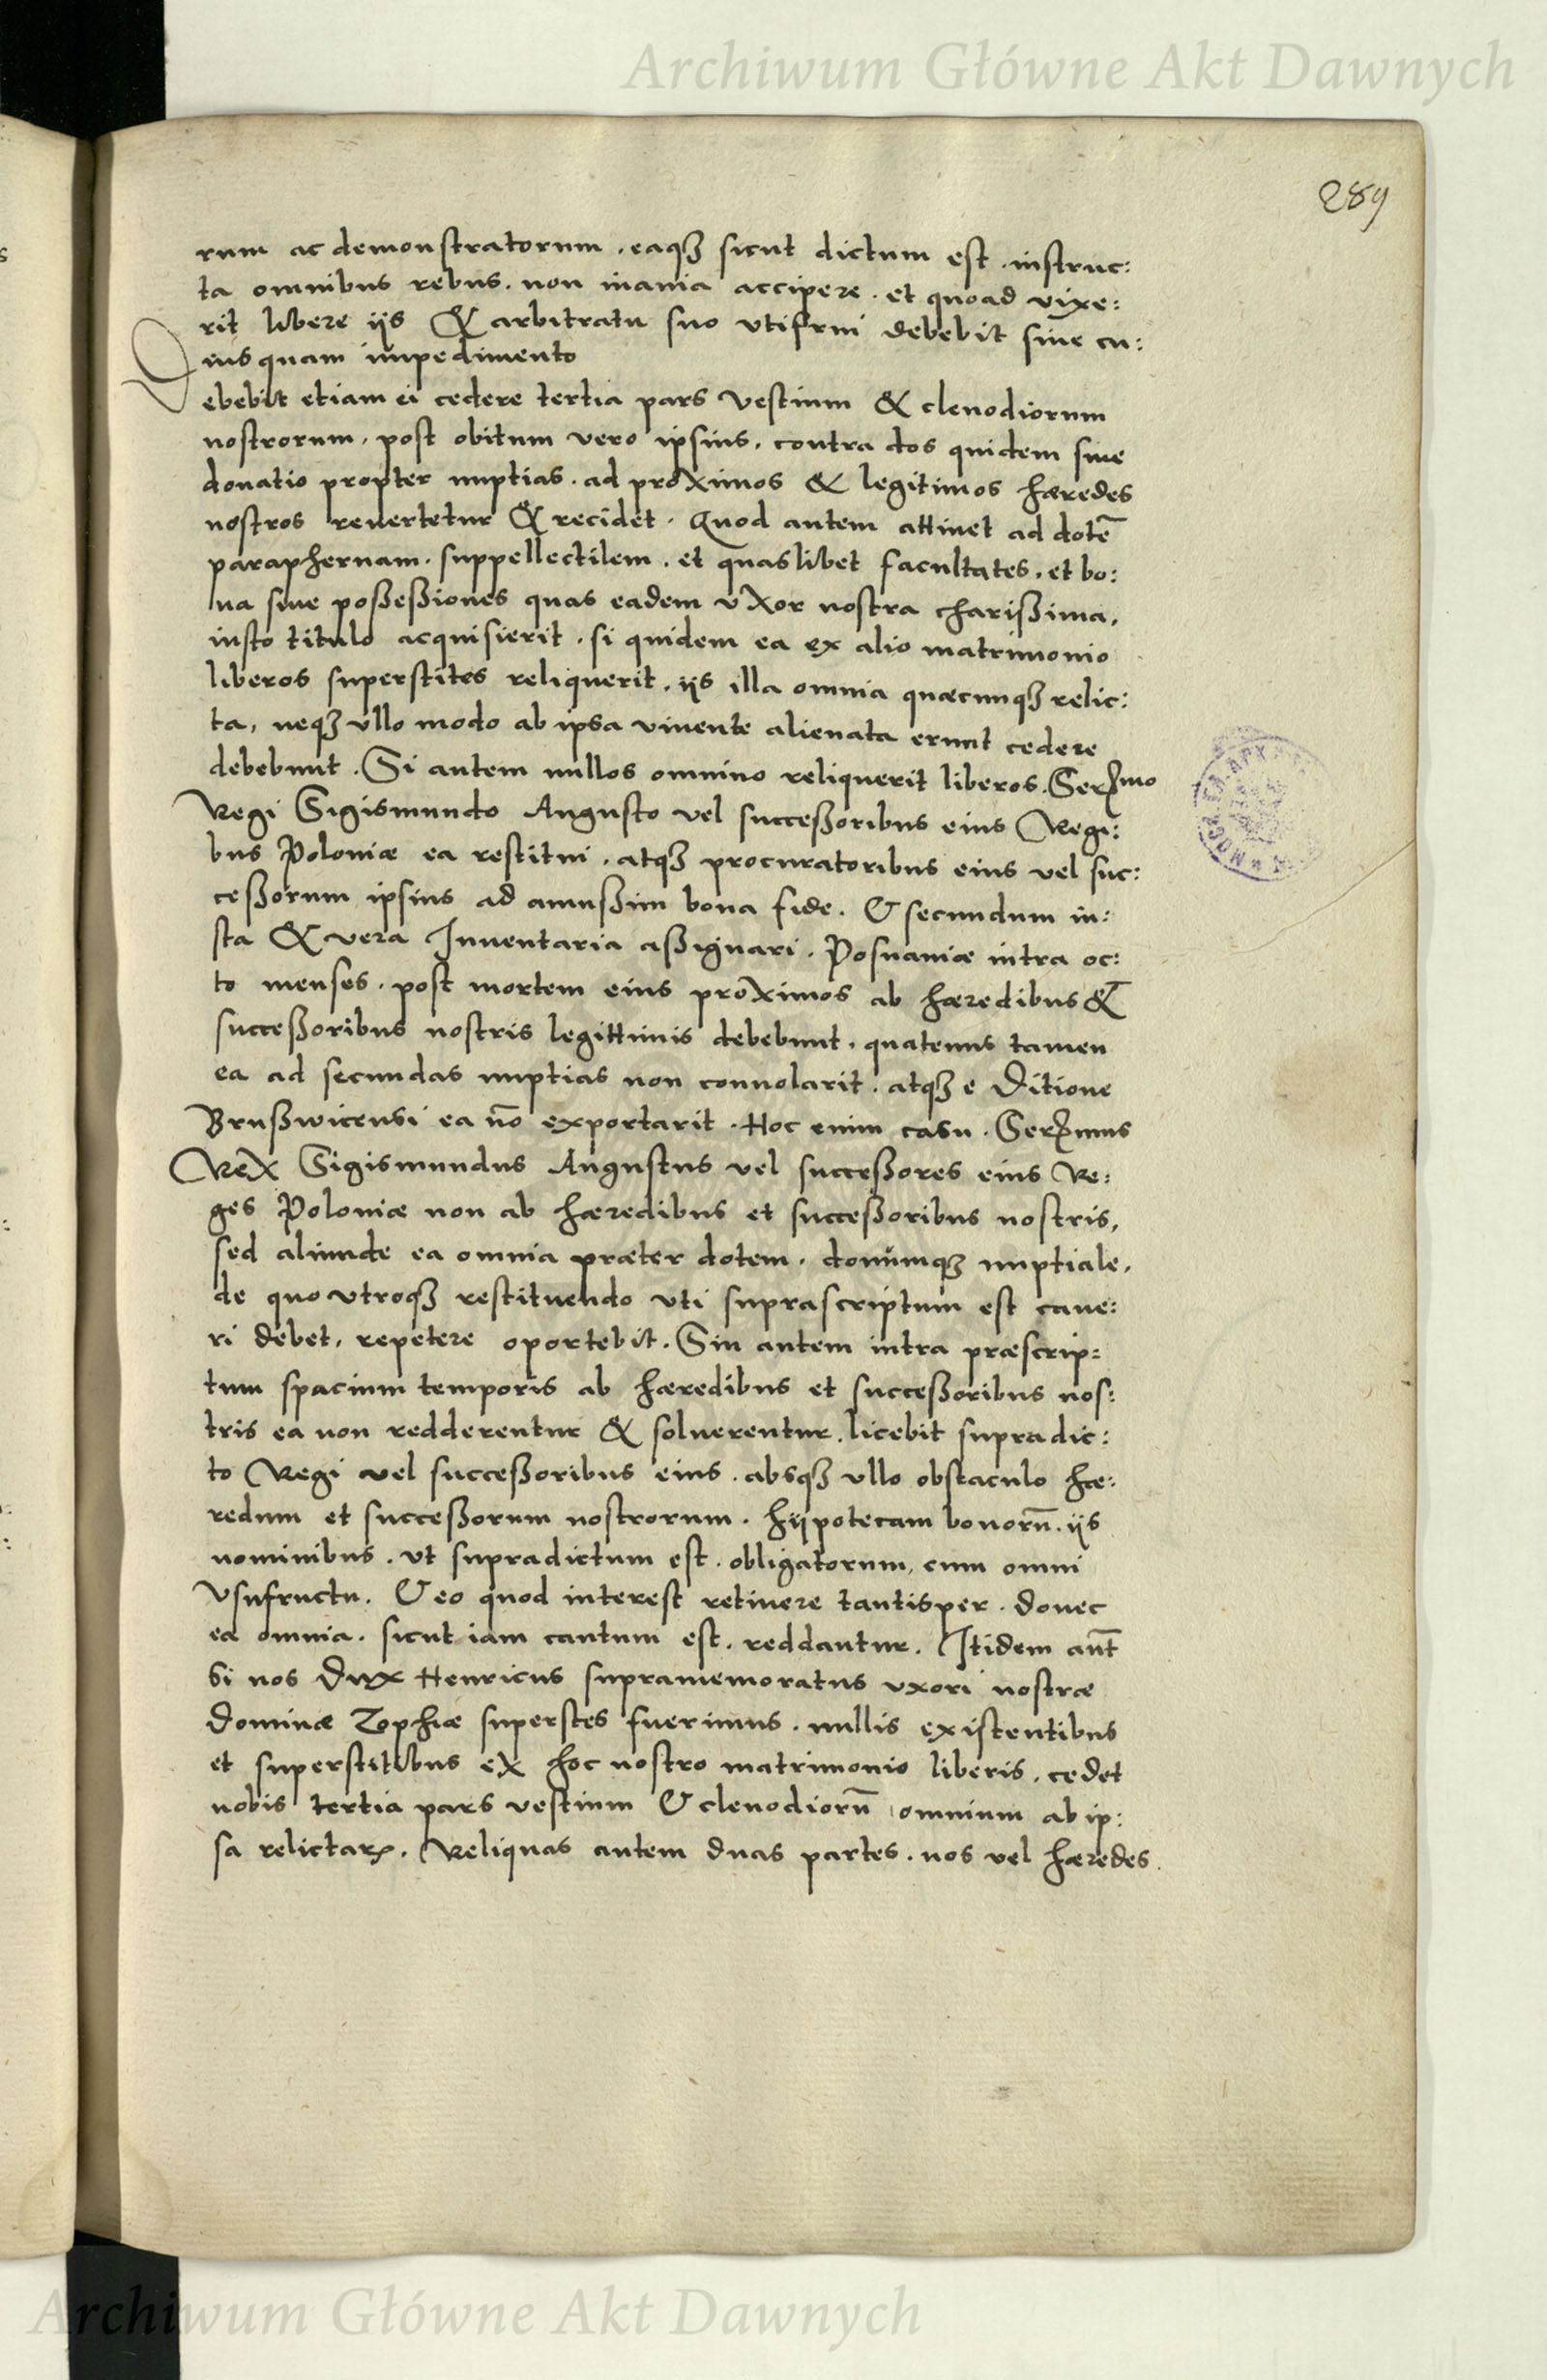 Archiwum Główne Akt Dawnych
289
rum ac demonstratorum . eaqꝫ sicut dictum est . instruc:
ta omnibus rebus . non inania accipere . et quoad vixe:
rit libere ijs & arbitratu suo vtifrui debebit sine cu:
iusquam impedimento
Debebit etiam ei cedere tertia pars vestium & clenodiorum
nostrorum . post obitum vero ipsius , contra dos quidem siue
donatio propter nuptias . ad proximos & legitimos hæredes
nostros reuertetur & recidet . Quod autem attinet ad dotē
paraphernam . suppellectilem . et quaslibet facultates . et bo:
na siue poßeßiones quas eadem vxor nostra charißima ,
iusto titulo acquisierit . si quidem ea ex alio matrimonio
liberos superstites reliquerit . ijs illa omnia quæcunqꝫ relic:
ta , neqꝫ vllo modo ab ipsa viuente alienata erunt cedere
debebunt . Si autem nullos omnino reliquerit liberos . Serꝫmo
Regi Sigismundo Augusto vel succeßoribus eius Regi:
bus Poloniæ ea restitui . atqꝫ procuratoribus eius vel suc:
ceßorum ipsius ad amußim bona fide . & secundum iu:
sta & vera Inuentaria aßignari . Posnaniæ intra oc:
to menses . post mortem eius proximos ab hæredibus &
succeßoribus nostris legittimis debebunt . quatenus tamen
ea ad secundas nuptias non conuolarit . atqꝫ e Ditione
Brußwicensi ea nō exportarit . Hoc enim casu . Serꝫmus
Rex Sigismundus Augustus vel succeßores eius Re:
ges Poloniæ non ab hæredibus et succeßoribus nostris ,
sed aliunde ea omnia præter dotem . donumqꝫ nuptiale ,
de quo vtroqꝫ restituendo vti suprascriptum est caue:
ri debet , repetere oportebit . Sin autem intra præscrip:
tum spacium temporis ab hæredibus et succeßoribus nos:
tris ea non redderentur & soluerentur . licebit supradic:
to Regi vel succeßoribus eius . absqꝫ vllo obstaculo hæ:
redum et succeßorum nostrorum . hijpotecam bonorū . ijs
nominibus . vt supradictum est . obligatorum , cum omni
vsufructu . & eo quod interest retinere tantisper . donec
ea omnia . sicut iam cautum est . reddantur . Itidem aut̄
si nos Dux Henricus supramemoratus vxori nostræ
dominæ Zophiæ superstes fuerimus . nullis existentibus
et superstitibus ex hoc nostro matrimonio liberis . cedet
nobis tertia pars vestium & clenodiorū omnium ab ip:
sa relictarꝝ . Reliquas autem duas partes . nos vel hæredes
Archiwum Główne Akt Dawnych